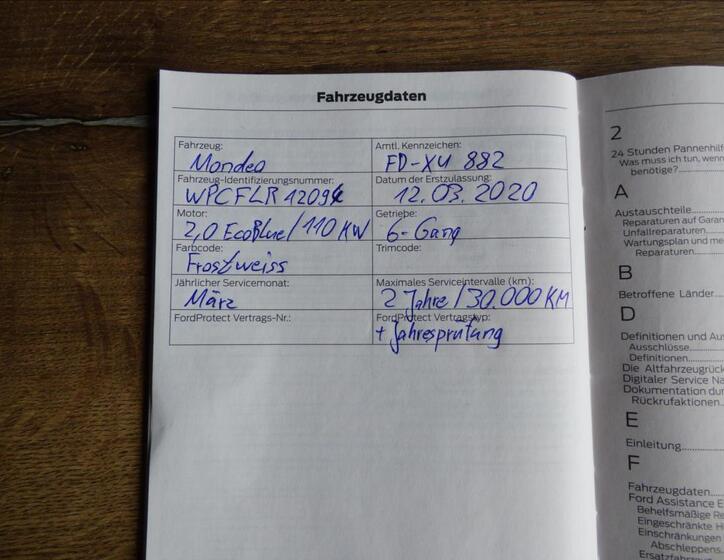 Fahrzeugdaten
Fahrzeug:
Mondeo
Amtl. Kennzeichen:
FD-XU 882
Fahrzeug-Identifizierungsnummer:
WPCFLR
Datum der Erstzulassung:
12.03.2020
Motor:
2,0 EcoBlue/110 KW
Getriebe:
6-Gang
Farbcode:
Frostweiss
Trimcode:
Jährlicher Servicemonat:
März
Maximales Serviceintervalle (km):
2 Jahre/30.000 KM
FordProtect Vertrags-Nr.:
FordProtect Vertragstyp:
+ Jahresprüfung
2
24 Stunden Pannenhilf
Was muss ich tun, wenn
benötige?
A
Austauschteile
Reparaturen auf Garan
Unfallreparaturen
Wartungsplan und me
Reparaturen
B
Betroffene Länder
D
Definitionen und Aus
Ausschlüsse
Definitionen
Die Altfahrzeugrück
Digitaler Service Na
Dokumentation dur
Rückrufaktionen
E
Einleitung
F
Fahrzeugdaten
Ford Assistance E
Behelfsmäßige Re
Eingeschränkte H
Einschränkungen
Abschleppe
Ersatzfahr